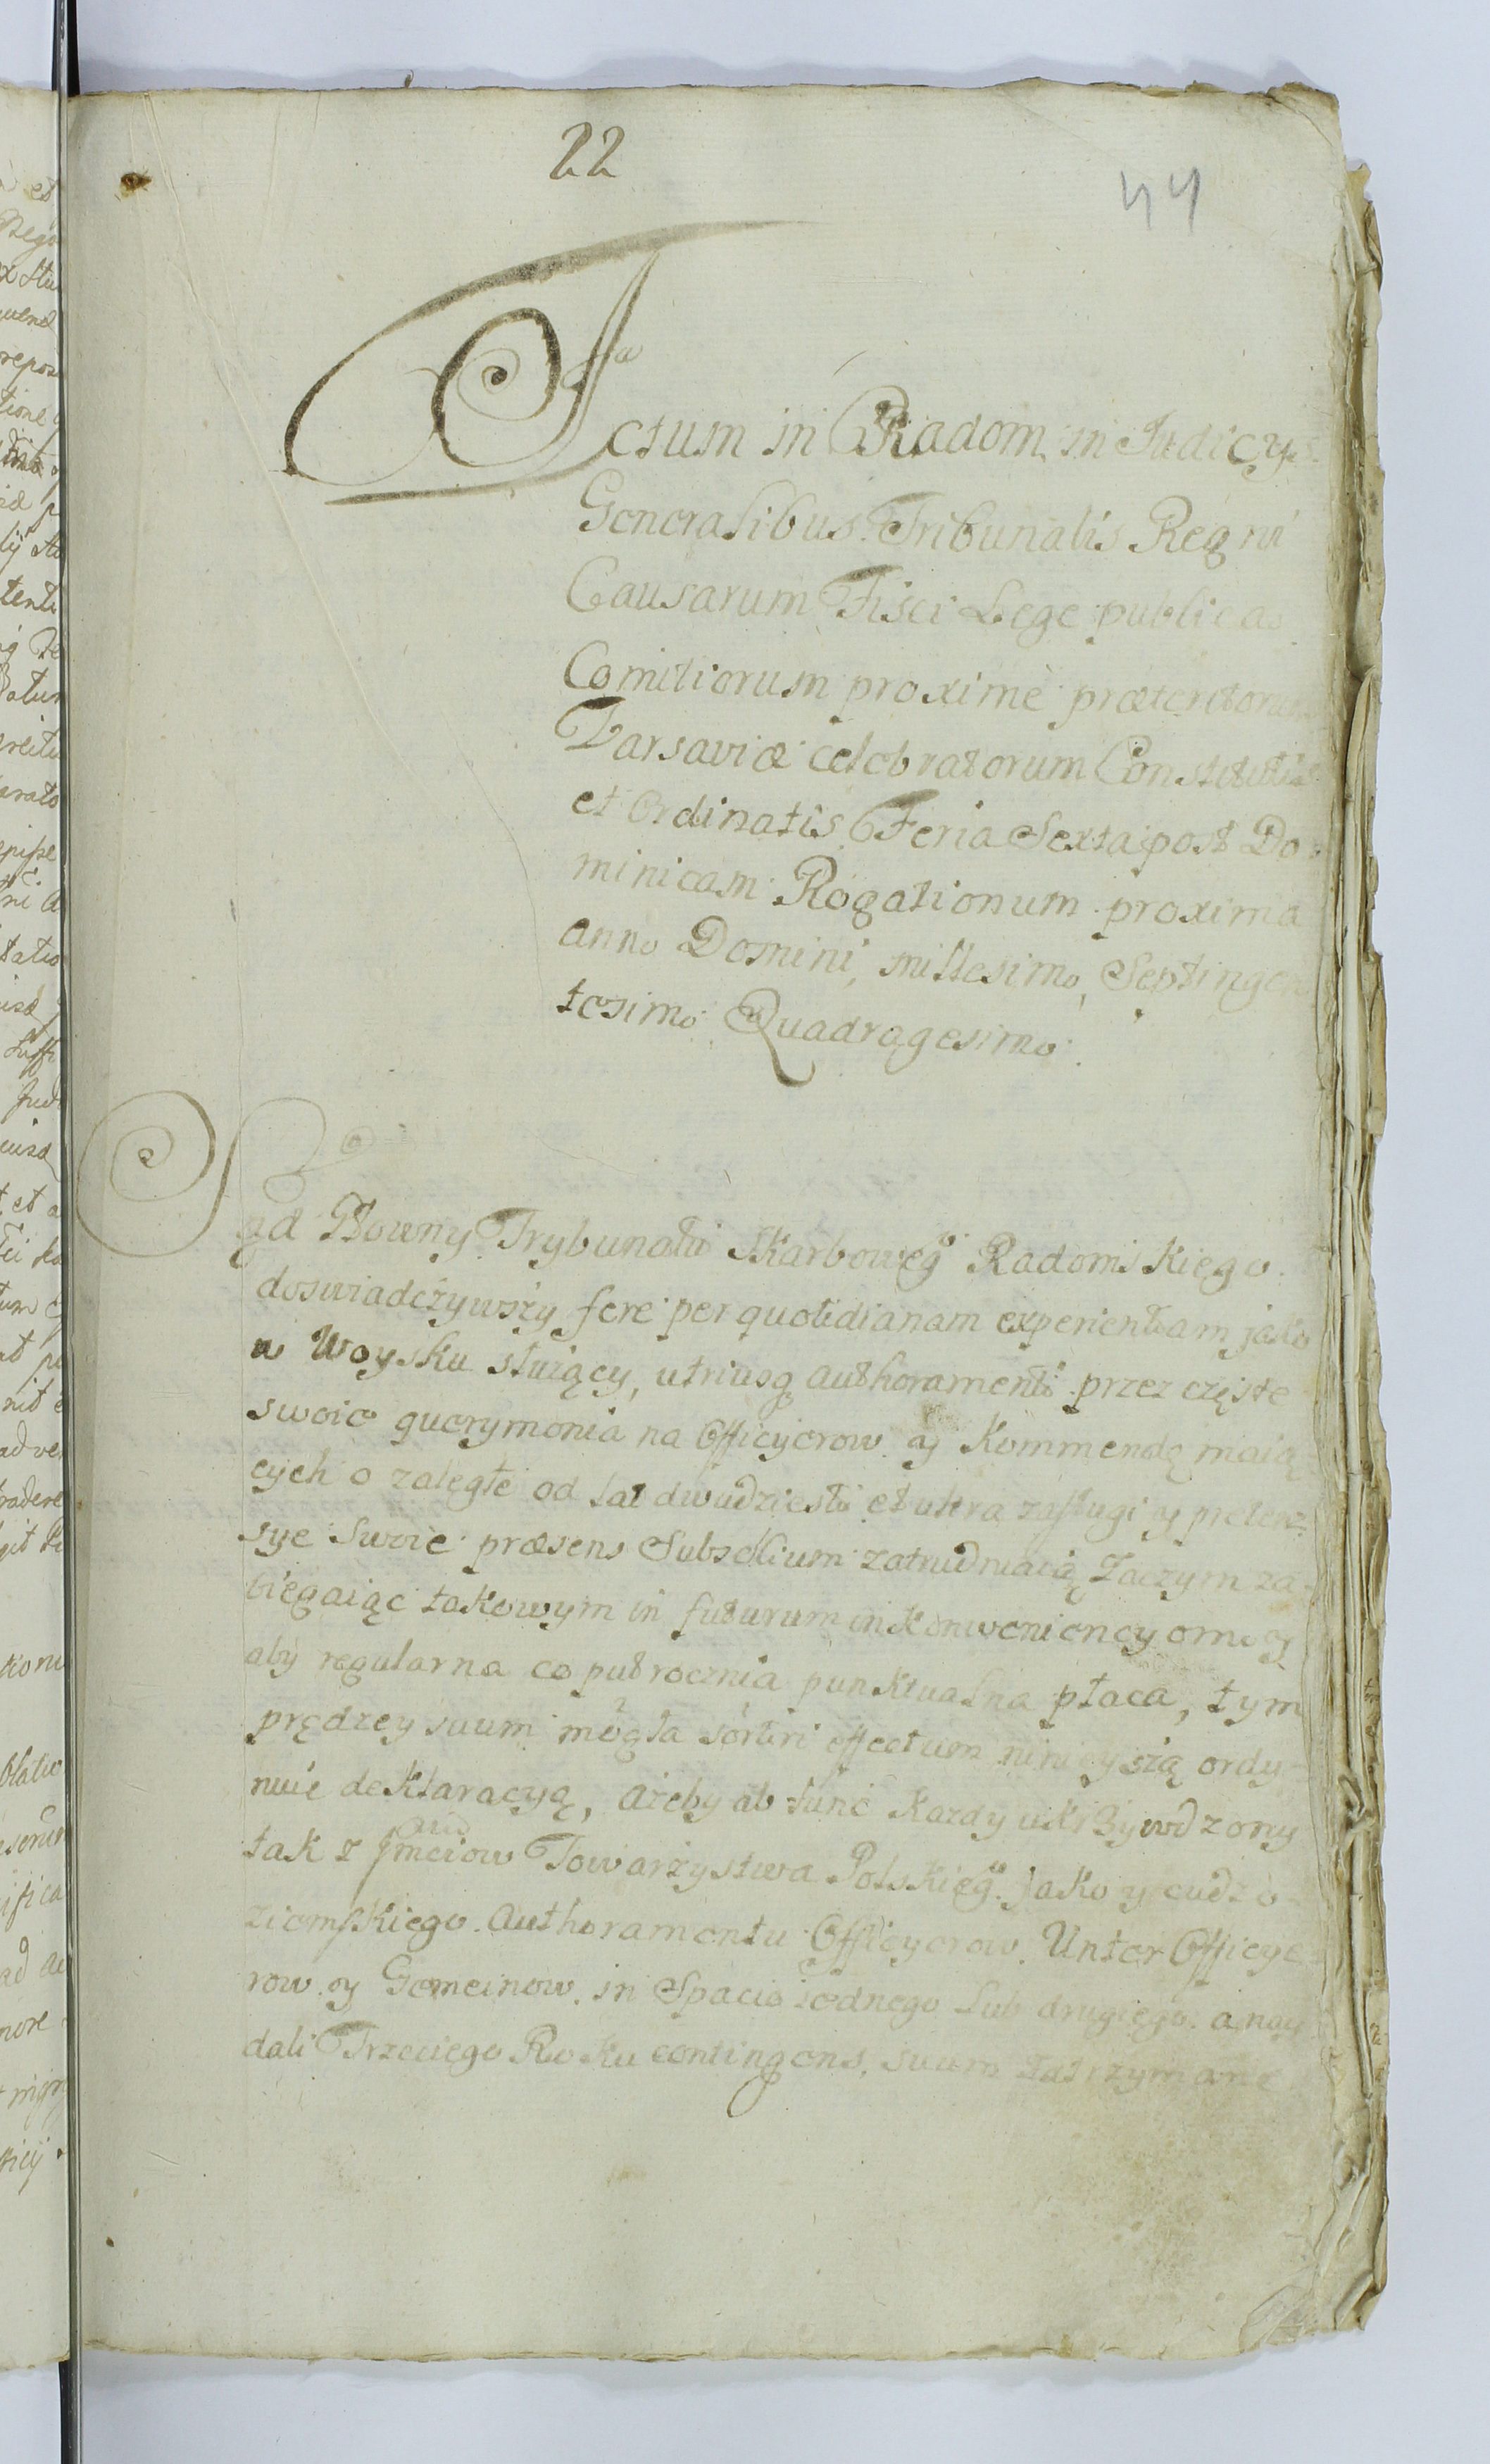 22
44
Actum in Radom in Judicys
Generalibus Tribunalis Regni
Causarum Fisci Lege publica
Comitiorum proximè præteritorum
Varsaviæ celebratorum Constitutis
et Ordinatis Feria Sexta post Do-
minicam Rogationum proxima
anno Domini, millesimo, Septingen
tesimo Quadragesimo.
Sąd Głowny Trybunału Skarboweg° Radomskiego
doswiadczywszy fere per quotidianam experientiam jako
w Woysku słuzący, utriusq authoramenti przez częste
swoie querymonia na Officyerow y Kommendę maią
cych o zaległe od lat dwudziestu et ultra zasługi y preten
sye swoie præsens Subsellium zatrudniaią Zaczym za-
biegaiąc takowym in futurum inkonveniencyom y
aby regularna co pułrocznia punktualna płaca, tym
prędzey suum mogła sortiri effectum ninieyszą ordy-
nuie deklaracyą, ażeby ab tunc kazdy ukrzywdzony
tak z Jmciow Towarzystwa Polskieg° jako y cudzo-
ziemskiego Authoramentu Officyerow, Unter Officye
row y Gemeinow in Spacio iednego lub drugiego a nay
dali Trzeciego Roku contingens, suum zatrzymane